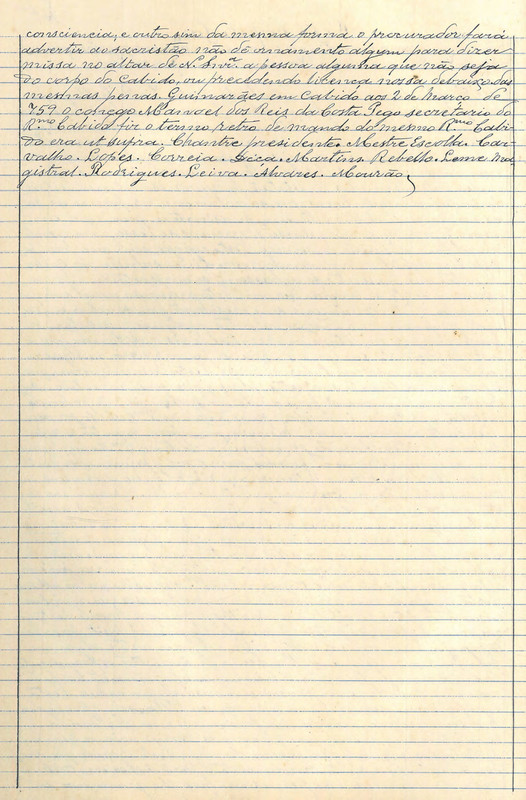 consciencia, e outro sim da mesma forma o procurador fará
advertir ao sacristão não dê ornamento algum para dizer
missa no altar de N. Snrª. a pessoa alguma que não seja
do corpo do Cabido, ou precedendo licença nossa debaixo das
mesmas penas. Guimarães em Cabido aos 2 de Março de
759, o conego Manoel dos Reis da Costa Pego secretario do
R.mo Cabido fiz o termo retro de mando do mesmo R.mo Cabi-
do era ut supra. Chantre presidente. Mestre Escolla. Car-
valho. Lopes. Correia. Martins. Rebello. Leme Ma-
gistral. Rodrigues. Leiva. Alvares. Mourão.